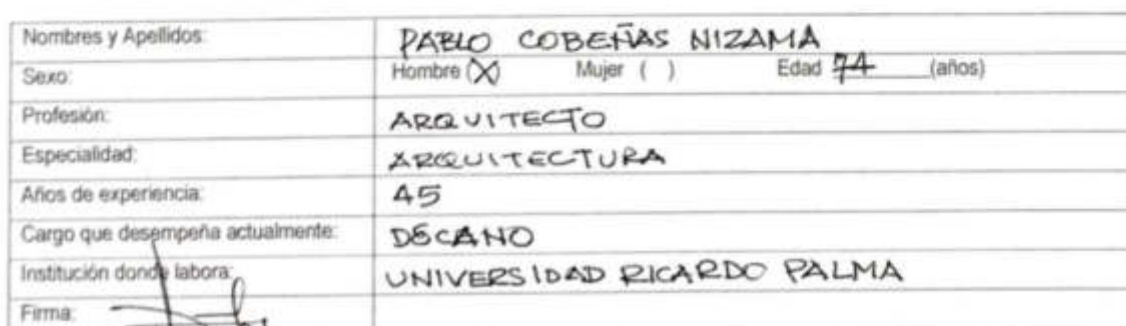 Nombres y Apellidos: PABLO COBEÑAS NIZAMA
Sexo: Hombre (X) Mujer ( ) Edad 74 (años)
Profesión: ARQUITECTO
Especialidad: ARQUITECTURA
Años de experiencia: 45
Cargo que desempeña actualmente: DECANO
Institución donde labora: UNIVERSIDAD RICARDO PALMA
Firma: